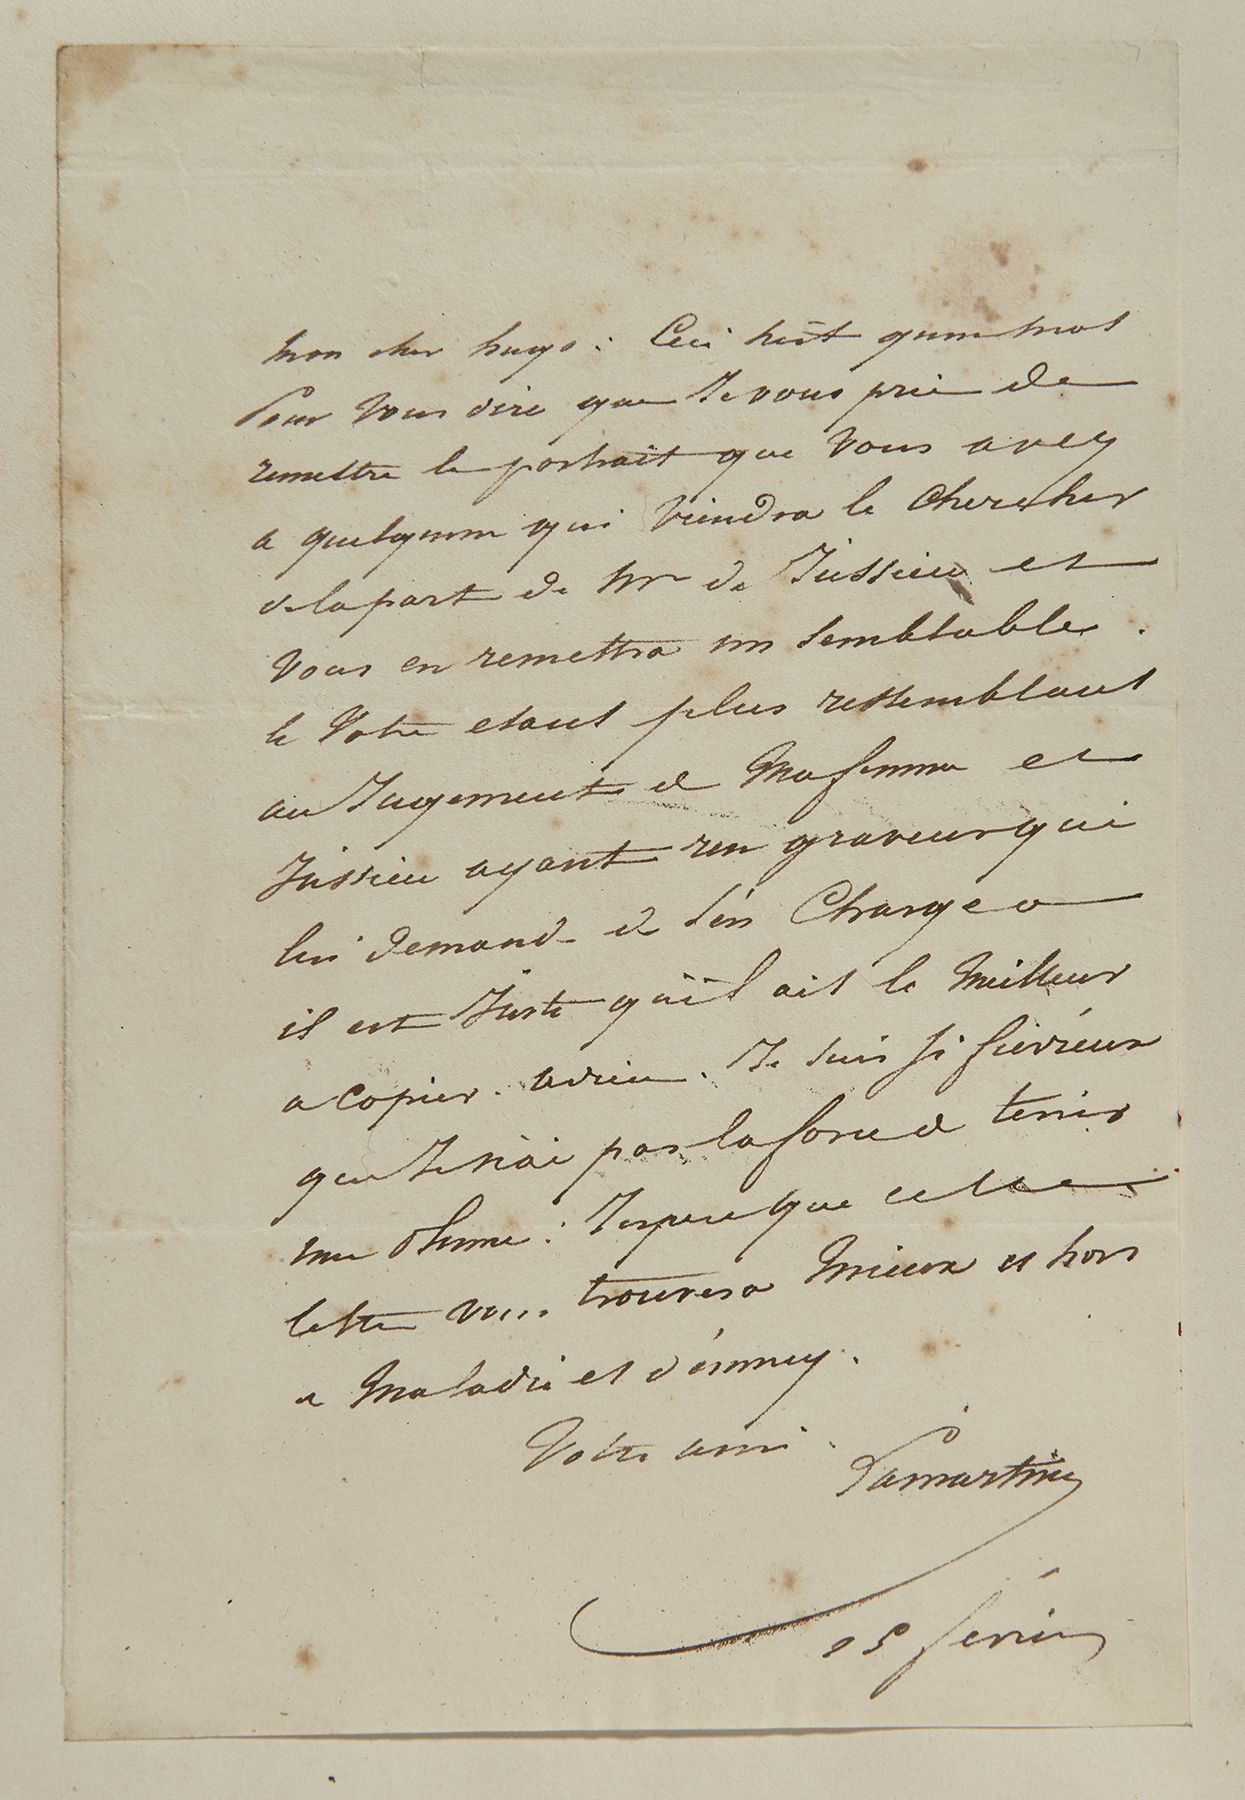 mon cher hugo : Ceci n'est qu'un mot
Pour Vous dire que Je vous prie de
remettre le portrait que Vous avez
a quelqu'un qui Viendra le Chercher
de la part de Mr de Jussieu et
Vous en remettra un semblable.
le Votre etant plus ressemblant
au Jugement de Ma femme et
Jussieu ayant un graveur qui
lui demande de s'en Charger
il est Juste qu'il ait le Meilleur
a Copier. adieu. Je suis si fiévreux
que Je n'ai pas la force de tenir
une plume : J'espere que cette
lettre vous trouvera Mieux et hors
de Maladie et d'ennuy.
Votre ami.
Lamartine
25 février